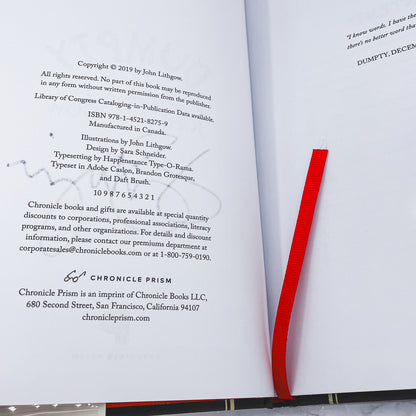 Copyright © 2019 by John Lithgow.
All rights reserved. No part of this book may be reproduced
in any form without written permission from the publisher.
Library of Congress Cataloging-in-Publication Data available.
ISBN 978-1-4521-8275-9
Manufactured in Canada.
Illustrations by John Lithgow.
Design by Sara Schneider.
Typesetting by Happenstance Type-O-Rama.
Typeset in Adobe Caslon, Brandon Grotesque,
and Daft Brush.
10 9 8 7 6 5 4 3 2 1
Chronicle books and gifts are available at special quantity
discounts to corporations, professional associations, literacy
programs, and other organizations. For details and discount
information, please contact our premiums department at
corporatesales@chroniclebooks.com or at 1-800-759-0190.
CHRONICLE PRISM
Chronicle Prism is an imprint of Chronicle Books LLC,
680 Second Street, San Francisco, California 94107
chronicleprism.com
"I know words. I have the
there's no better word tha
DUMPTY, DECEM